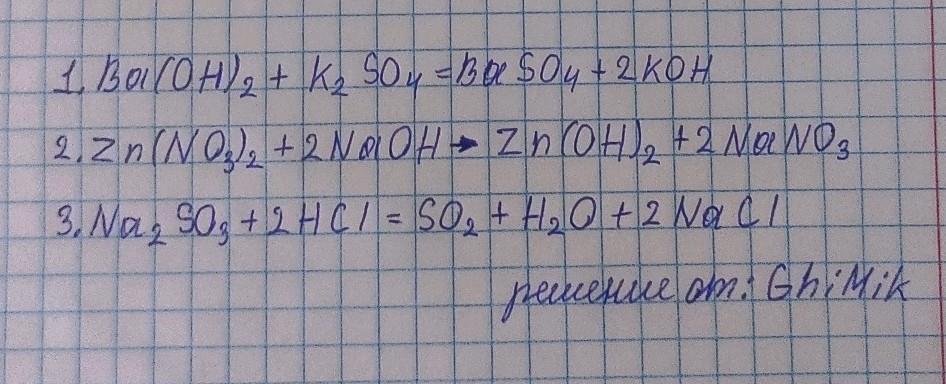 1. Ba(OH)₂ + K₂SO₄ = BaSO₄ + 2KOH
2. Zn(NO₃)₂ + 2NaOH → Zn(OH)₂ + 2NaNO₃
3. Na₂SO₃ + 2HCl = SO₂ + H₂O + 2NaCl
решение от: GhiMik